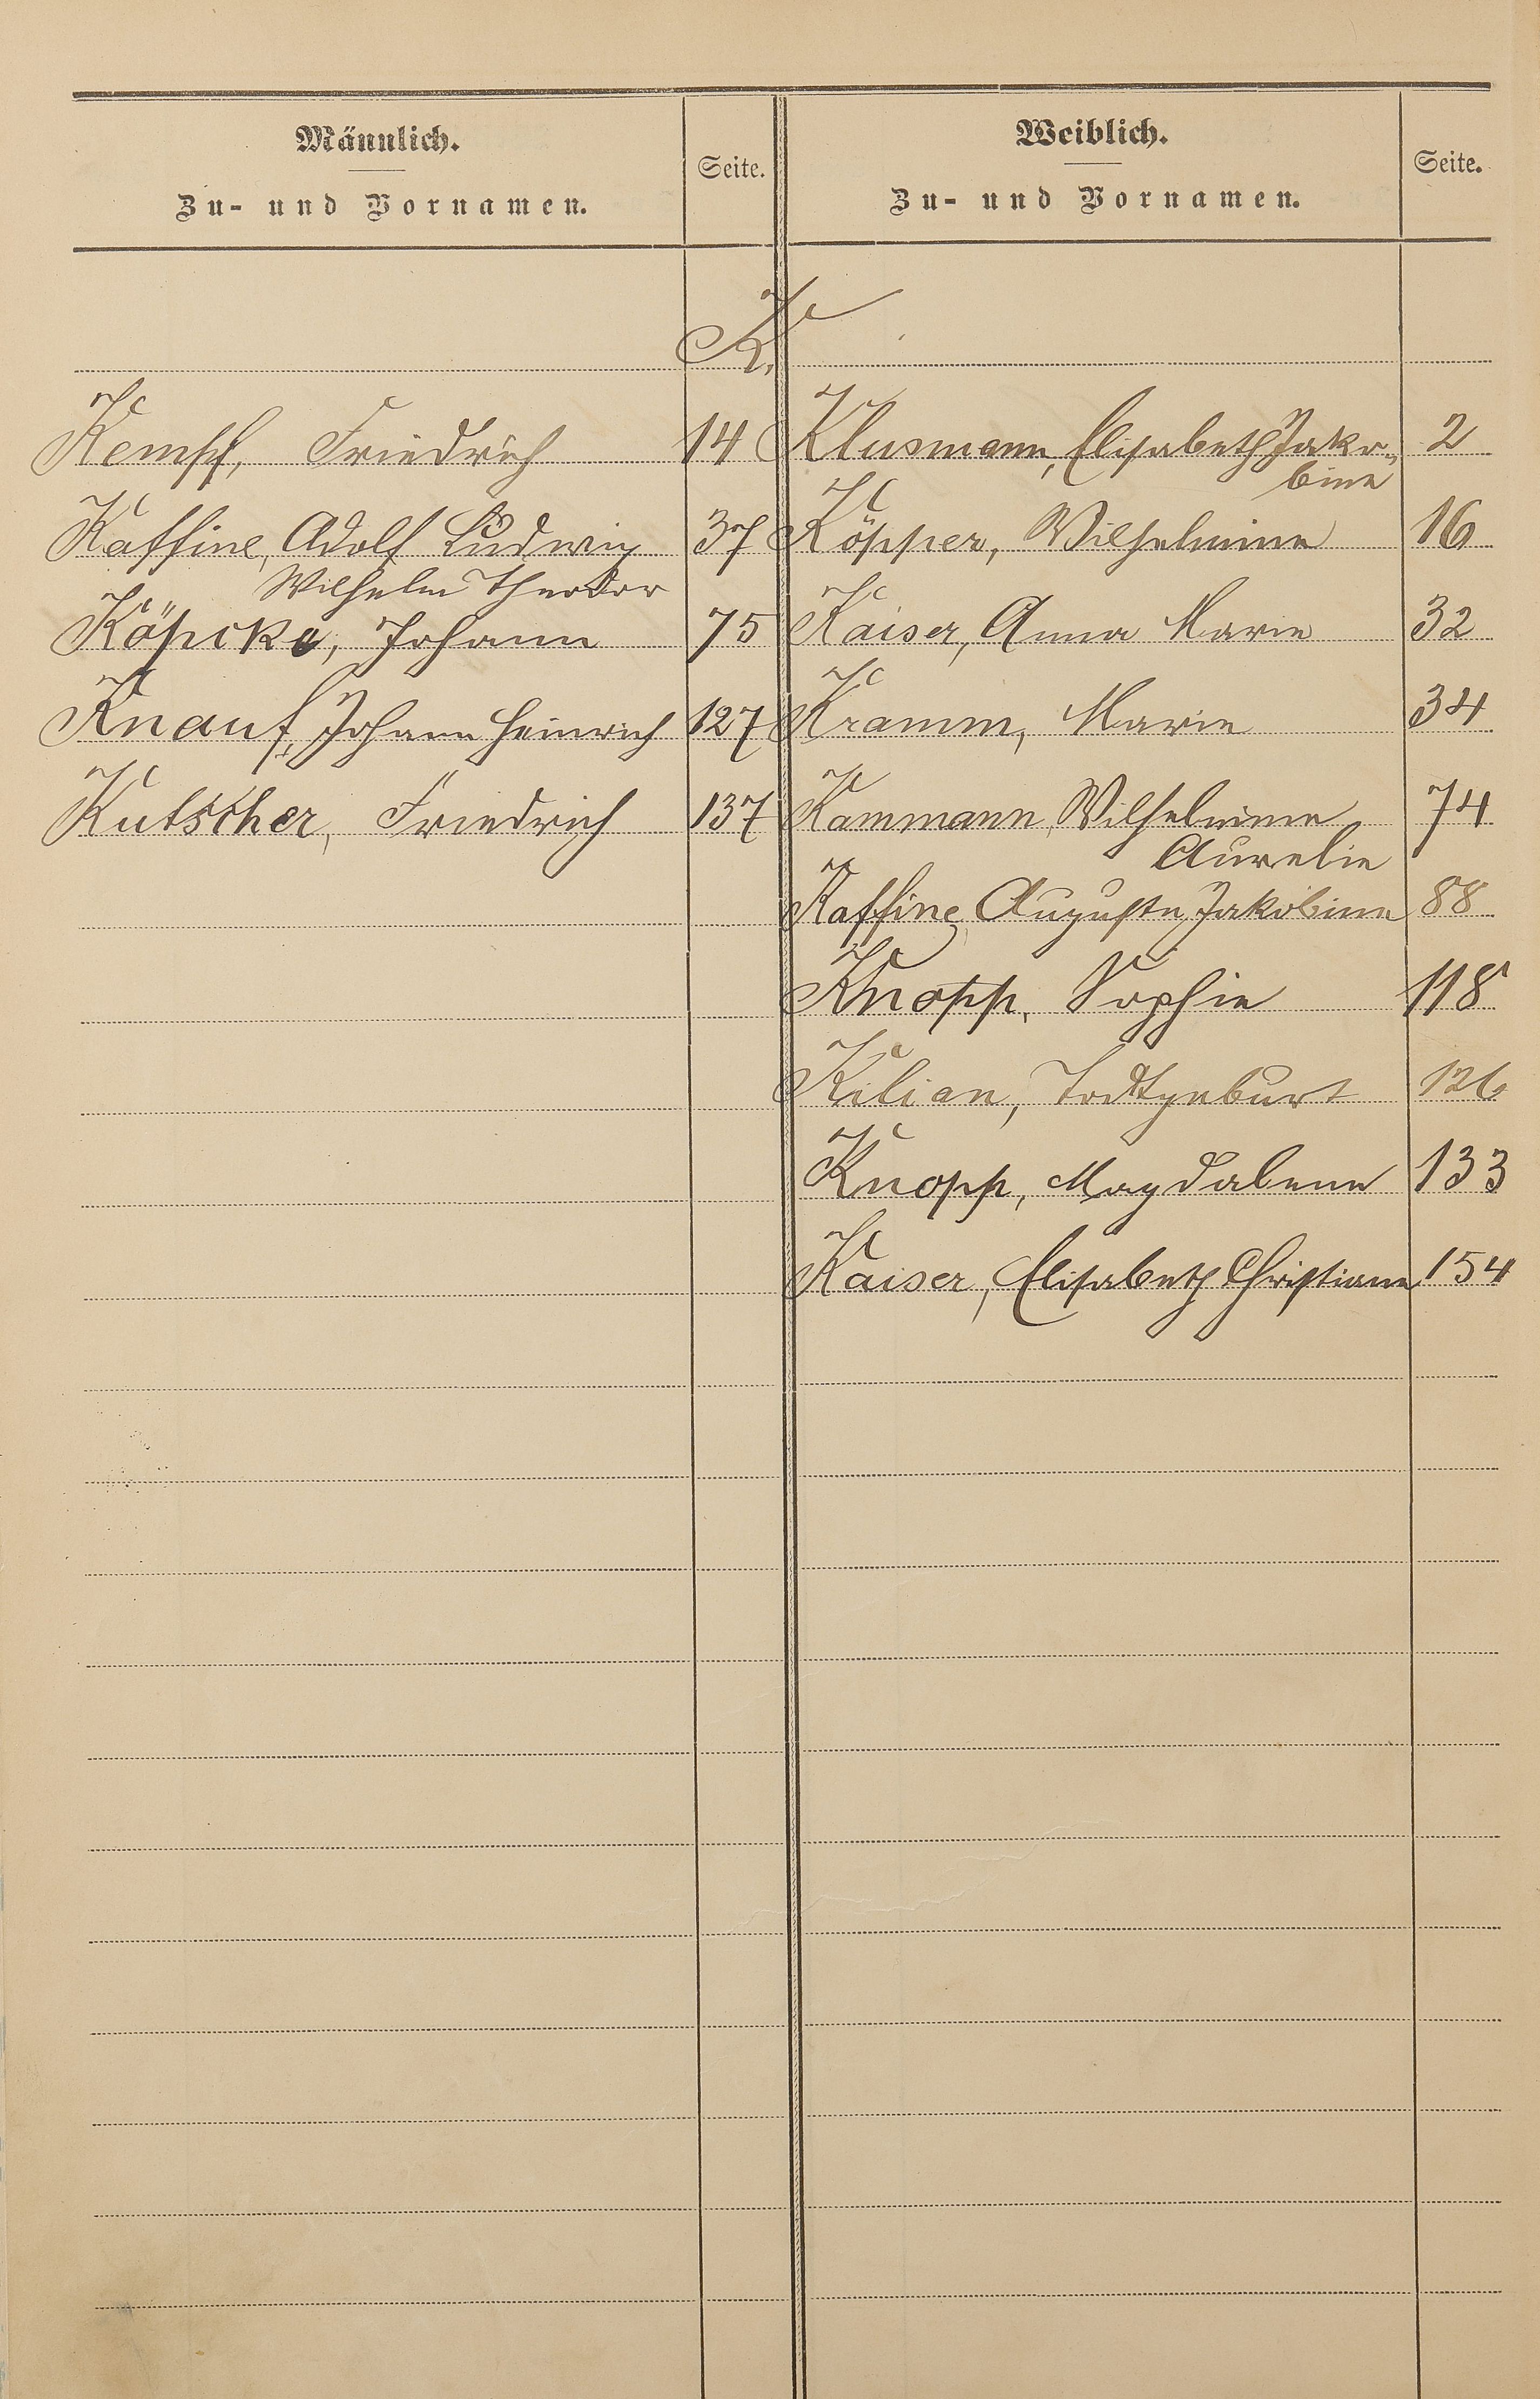 Männlich.
Zu- und Vornamen.
Seite.
Weiblich.
Zu- und Vornamen.
Seite.
K.
Kempf, Friedrich 14
Kaffine, Adolf Ludwig 37
Wilhelm Theodor
Köpcke, Johann 75
Knauf, Johann Heinrich 127
Kutscher, Friedrich 137
Klusmann, Elisabeth Jako- 2
bine
Köpper, Wilhelmine 16
Kaiser, Anna Marie 32
Kramm, Marie 34
Kammann, Wilhelmine 74
Aurelie
Kaffine, Auguste Jakobine 88
Knopp, Sophie 118
Kilian, Todtgeburt 126
Knopp, Magdalene 133
Kaiser, Elisabeth Christiane 154